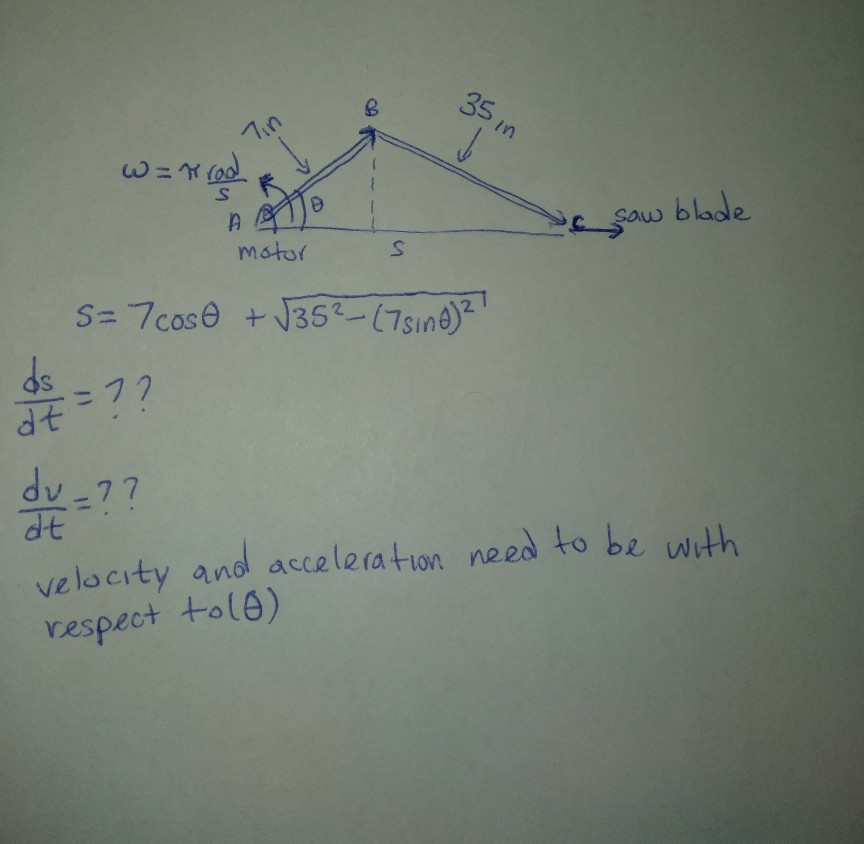 B
7in
35in
ω = π rad/s
θ
A
C
saw blade
motor
S
S = 7cosθ + √35² - (7sinθ)²
ds/dt = ??
dv/dt = ??
velocity and acceleration need to be with
respect to(θ)